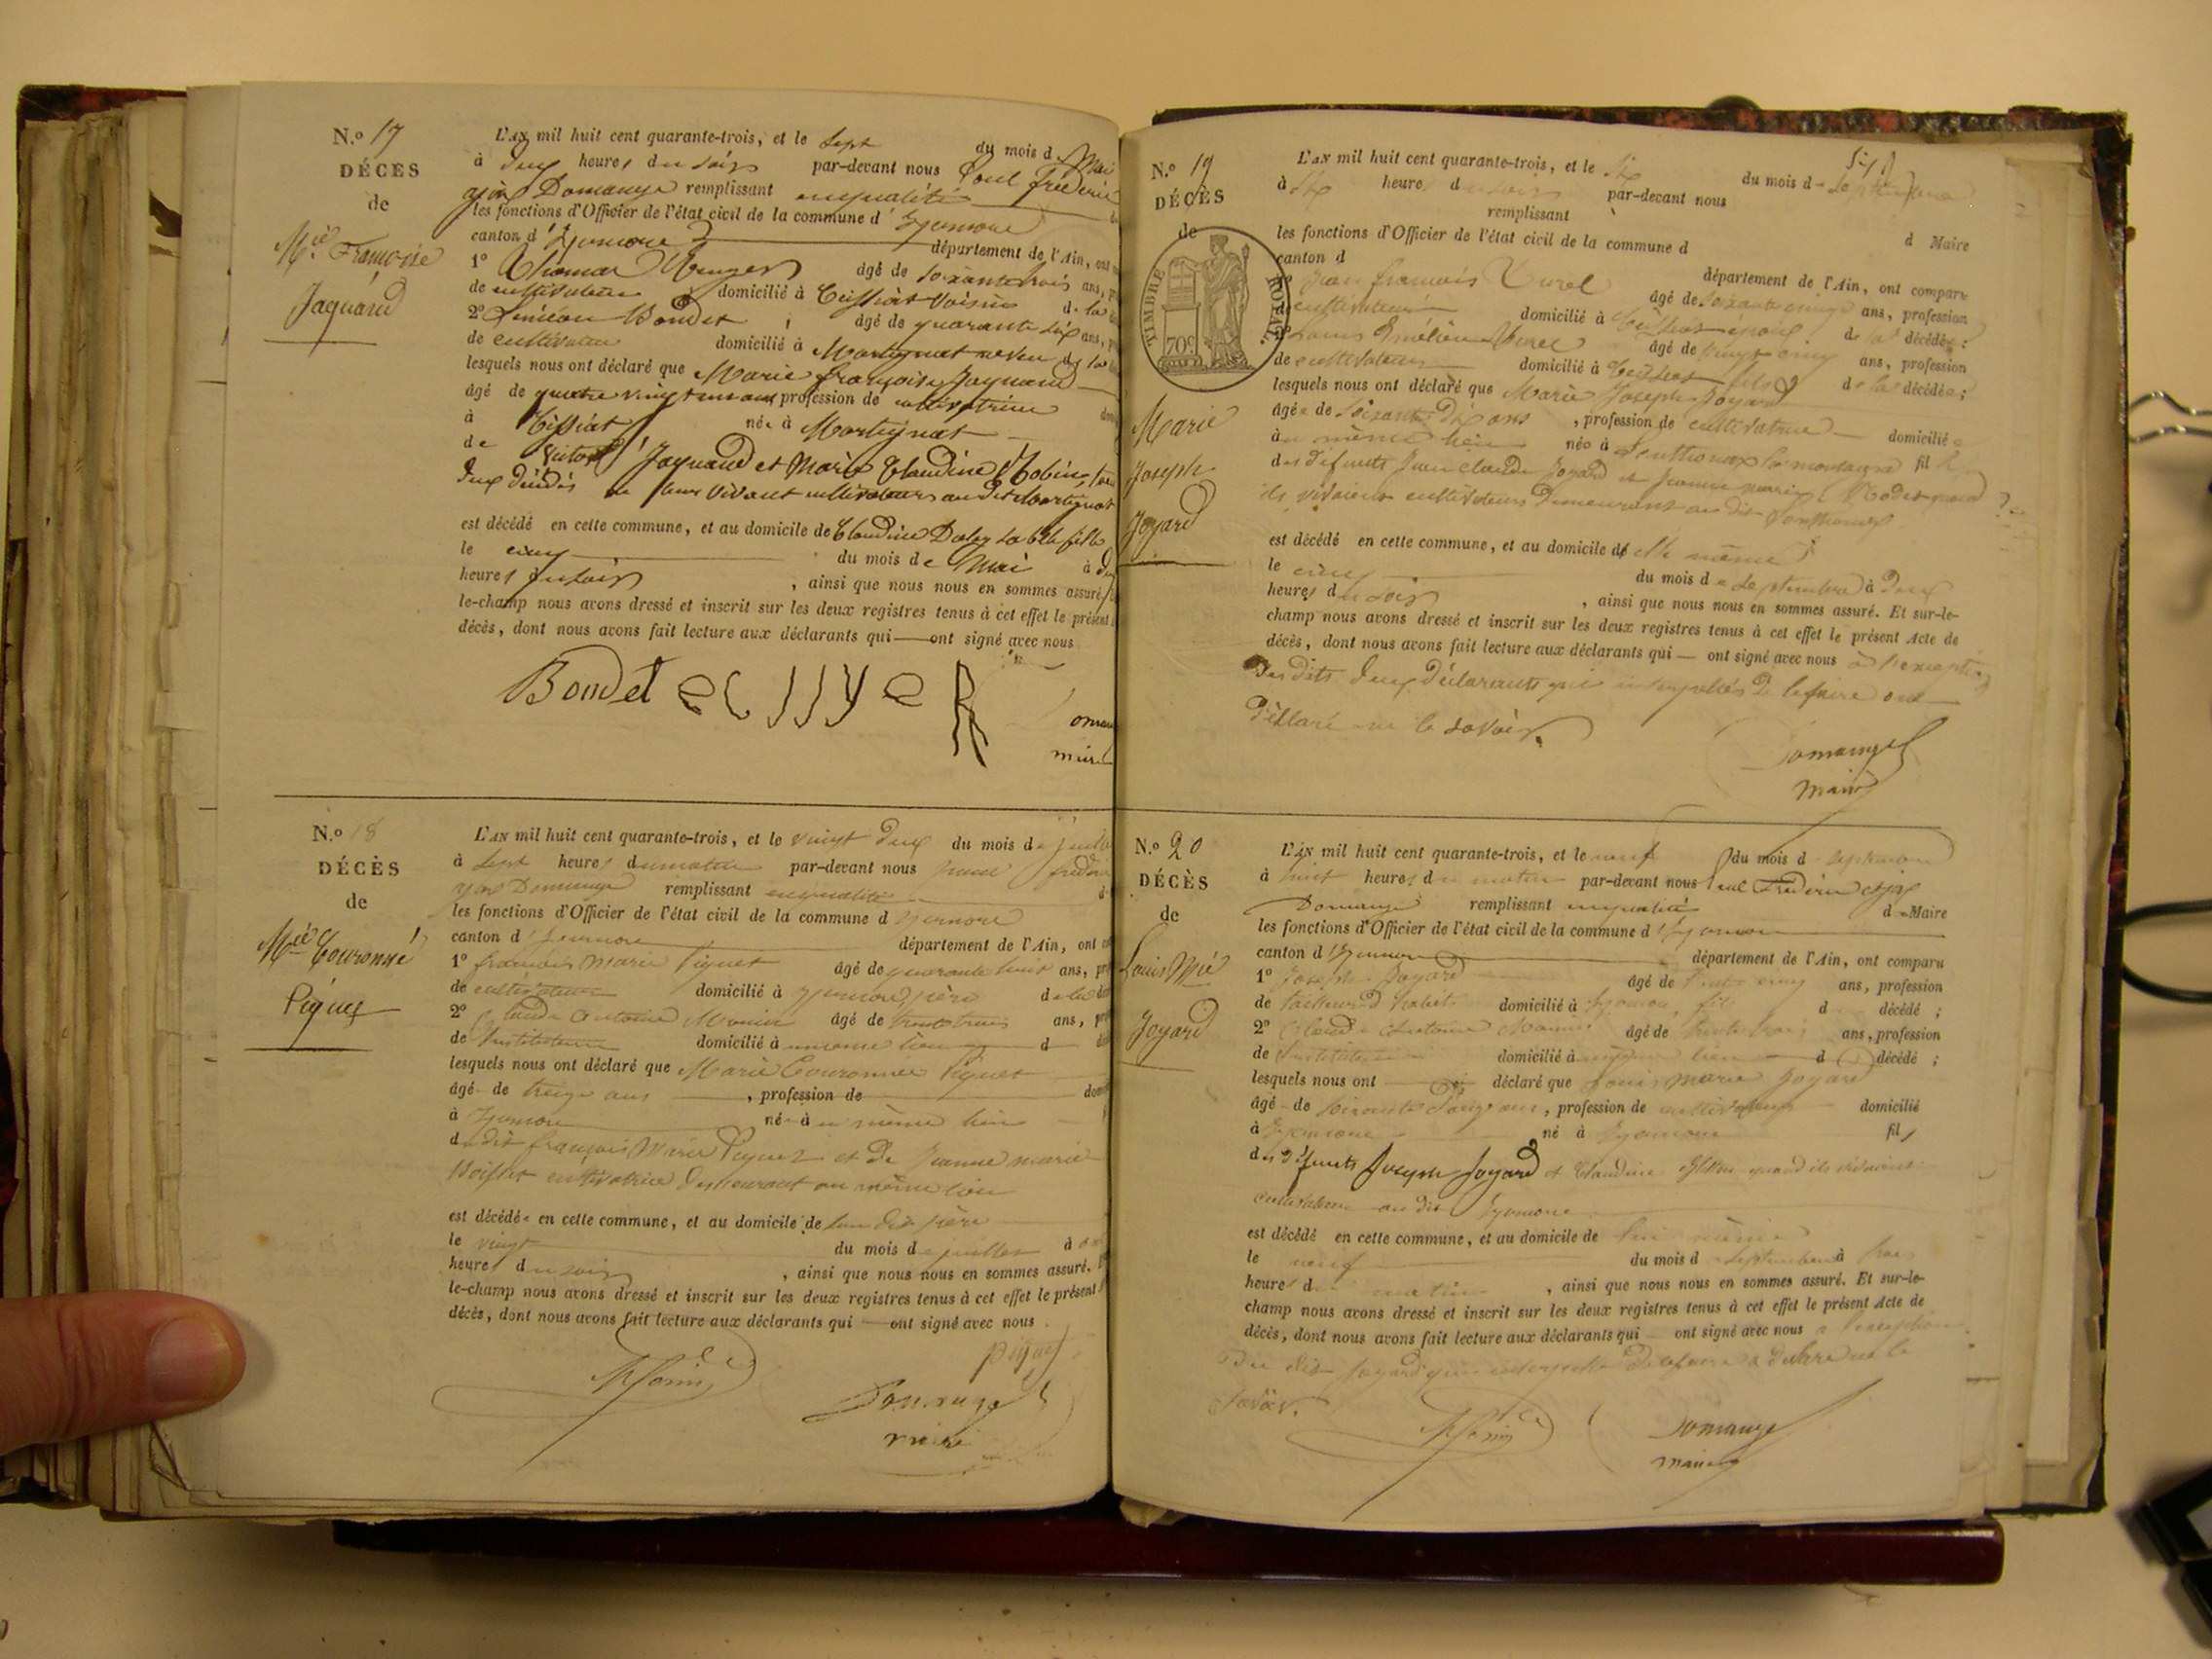 N.o 17
DÉCÈS
de
M.ie Francoise
Jaquand
L'AN mil huit cent quarante-trois, et le sept du mois de Mai
à deux heures du soir par-devant nous Paul Frédéric
Domange remplissant en qualité
les fonctions d'Officier de l'état civil de la commune d' Izernore
canton d' Izernore département de l'Ain, ont
1o Thomas âgé de soixante trois ans,
de cultivateur domicilié à Ceissiat Voisin de la
2o Siméon Bondet âgé de quarante six ans,
de cultivateur domicilié à Martignat neveu de la
lesquels nous ont déclaré que Marie françoise Jaquand
âgé de quatre vingt un ans profession de cultivatrice
à Ceissiat née à Martignat
de Jaquand et Marie Claudine Robin, tous
deux décédés de leur vivant cultivateurs au dit Martignat
est décédé en cette commune, et au domicile de Claudine sa belle fille
le cinq du mois de Mai à
heures du soir , ainsi que nous nous en sommes assuré,
le-champ nous avons dressé et inscrit sur les deux registres tenus à cet effet le présent
décès, dont nous avons fait lecture aux déclarants qui — ont signé avec nous
Bondet
N.o 18
DÉCÈS
de
M.ie Couronné
Piquet
L'AN mil huit cent quarante-trois, et le vingt deux du mois de
à sept heures du matin par-devant nous
Domange remplissant en qualité
les fonctions d'Officier de l'état civil de la commune d Izernore
canton d' Izernore département de l'Ain, ont
1o francois Marie Piquet âgé de quarante huit ans,
de cultivateur domicilié à Izernore, père de la
2o Claude Antoine Monin âgé de trente trois ans,
de Instituteur domicilié à u même lieu d
lesquels nous ont déclaré que Marie Couronnée Piquet
âgé de treize ans , profession de
à Izernore née à u même lieu
du dit françois Marie Piquet et de Jeanne marie
cultivatrice demeurant au même lieu
est décédée en cette commune, et au domicile de son dit père
le vingt du mois de juillet à
heures du soir , ainsi que nous nous en sommes assuré.
le-champ nous avons dressé et inscrit sur les deux registres tenus à cet effet le présent
décès, dont nous avons fait lecture aux déclarants qui — ont signé avec nous
Domange
maire
N.o 19
DÉCÈS
de
TIMBRE ROYAL
70c
Marie
Joseph
Joyard
L'AN mil huit cent quarante-trois, et le six du mois de Septembre
à six heures du soir par-devant nous
remplissant d Maire
les fonctions d'Officier de l'état civil de la commune d
canton d département de l'Ain, ont comparu
1o Jean francois Varel âgé de soixante cinq ans, profession
de cultivateur domicilié à Ceissiat époux de la décédée ;
2o Louis Varel âgé de vingt cinq ans, profession
de cultivateur domicilié à Ceissiat fils de la décédée ;
lesquels nous ont déclaré que Marie Joseph Joyard
âgée de soixante dix ans , profession de cultivatrice domicilié
à u même lieu née à Sonthonnax la montagne fil
des défunts Jean Claude Joyard et Jeanne marie quand
ils vivaient cultivateurs demeurant au dit Sonthonnax
est décédé en cette commune, et au domicile d elle même
le cinq du mois de Septembre à deux
heures du soir , ainsi que nous nous en sommes assuré. Et sur-le-
champ nous avons dressé et inscrit sur les deux registres tenus à cet effet le présent Acte de
décès, dont nous avons fait lecture aux déclarants qui — ont signé avec nous à l'exception
des dits deux déclarants qui interpellés de le faire ont
déclaré ne le savoir.
Domange
Maire
N.o 20
DÉCÈS
de
Louis Mie
Joyard
L'AN mil huit cent quarante-trois, et le neuf du mois d septembre
à huit heures du matin par-devant nous Paul Frédéric
Domange remplissant en qualité de Maire
les fonctions d'Officier de l'état civil de la commune d' Izernore
canton d' Izernore département de l'Ain, ont comparu
1o Joseph Joyard âgé de cinq ans, profession
de tailleur d'habits domicilié à Izernore, fils d décédé ;
2o Claude Antoine Monin âgé de trente trois ans, profession
de Instituteur domicilié à même lieu d décédé ;
lesquels nous ont déclaré que Louis marie Joyard
âgé de soixante ans, profession de cultivateur domicilié
à Izernore né à Izernore fils
des défunts Joseph Joyard et Claudine quand ils vivaient
cultivateurs au dit Izernore
est décédé en cette commune, et au domicile de lui même
le neuf du mois d septembre à trois
heures du matin , ainsi que nous nous en sommes assuré. Et sur-le-
champ nous avons dressé et inscrit sur les deux registres tenus à cet effet le présent Acte de
décès, dont nous avons fait lecture aux déclarants qui — ont signé avec nous à l'exception
du dit Joyard qui interpellé de le faire a déclaré ne le
savoir.
Domange
maire